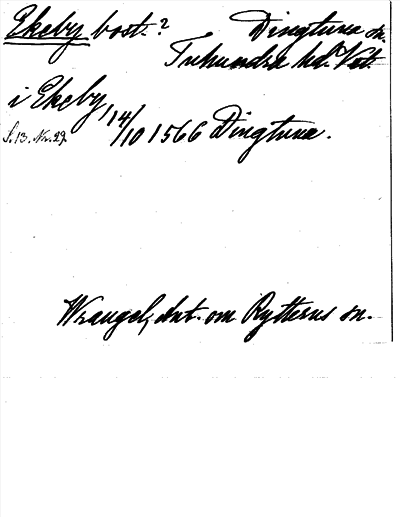 Ekeby bost.? Dingtuna sn.
Tuhundra hd. Vstl.
i Ekeby, 14/10 1566 Dingtuna.
S. 13. Nr. 29.
Wrangel, Ant. om Rytterns sn.